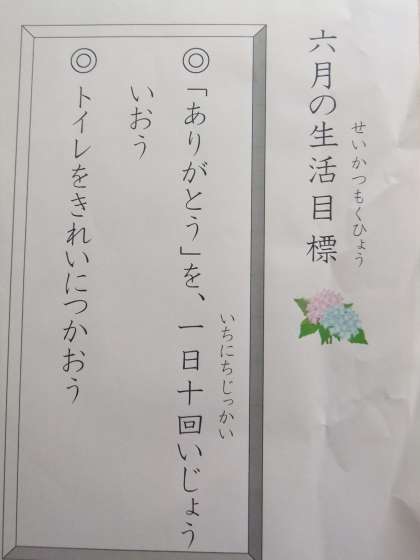 六月の生活目標
せいかつもくひょう
◎「ありがとう」を、一日十回いじょう
いちにちじっかい
いおう
◎トイレをきれいにつかおう